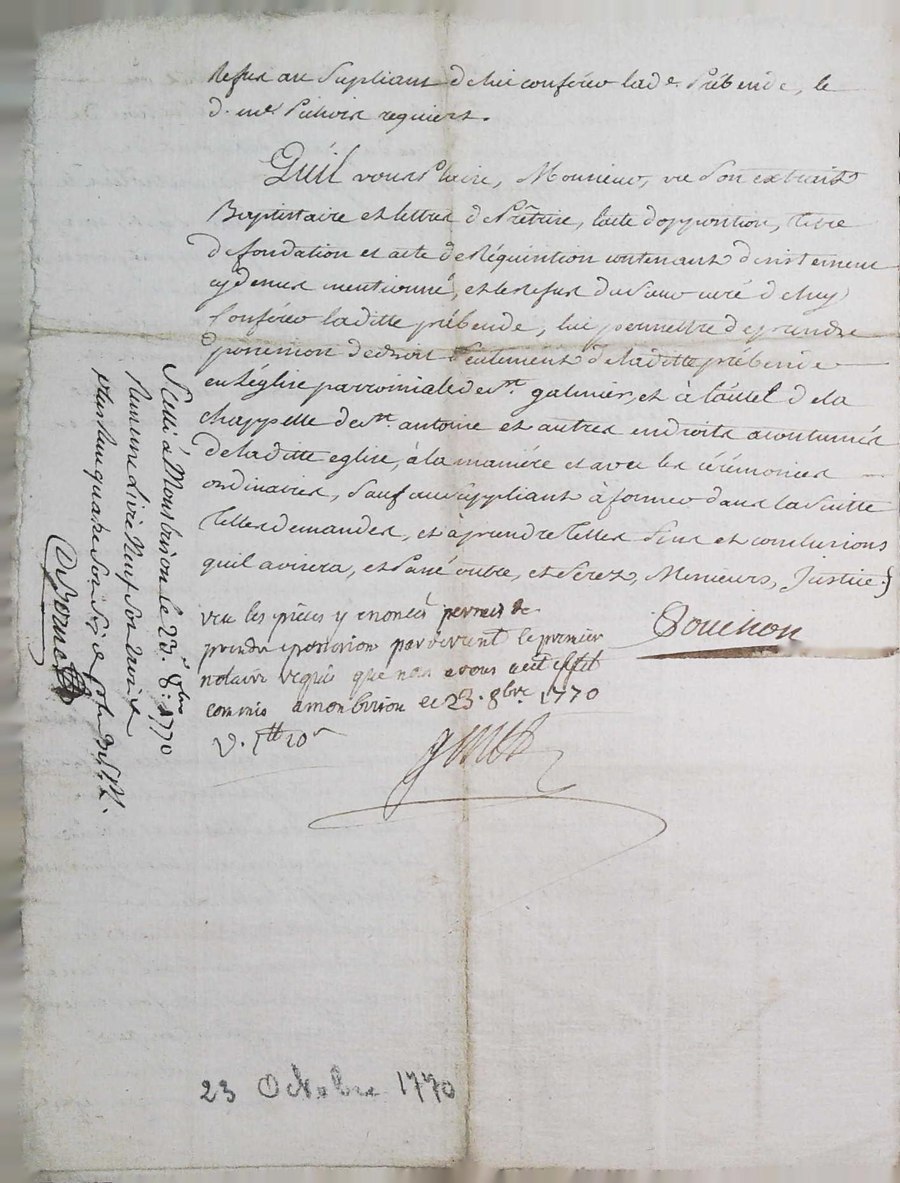 Refus au Supliant de lui conférer lad.e Prébende, le
d. me. requiert.
Quil vous Plaise, Monsieur, vu Son extrait
Baptistaire et lettres de Prêtrise, l'acte d'opposition, titre
de fondation et acte de Réquisition contenant
cydevant mentionné, et le refus du Sieur curé de luy
Conférer laditte prébende, lui permettre de prendre
possession de droit Seulement de laditte prébende
en l'église parroissiale de St. galmier, et à l'autel de la
chappelle de St. antoine et autres endroits acoutumés
de laditte eglise, à la maniére et avec les cérémonies
ordinaires, Sauf au Suppliant à former dans la Suitte
telles demandes, et à prendre telles fins et conclusions
quil avisera, et Passé outre, et Ferez, Messieurs, Justice.
Souchon
vu les pièces y enoncés permis de
prendre possession pardevant le premier
notaire requis que nous avons à cet effet
commis a montbrison ce 23. 8bre. 1770
V. 1tt 10s
Scellé à Montbrison le 23. 8bre 1770
Reçu une livre Neuf Sols trois d.
plus quatre Sols Six d.
23 Octobre 1770